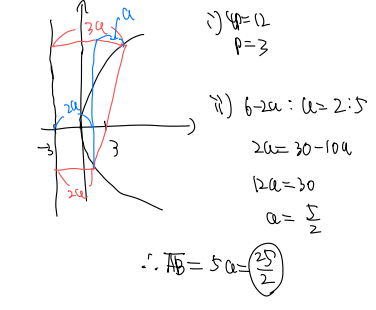 3a
a
2a
-3
3
2a
i) 4p=12
p=3
ii) 6-2a : a = 2:5
2a = 30-10a
12a = 30
a = 5/2
∴ AB = 5a = 25/2